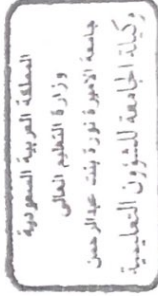 المملكة العربية السعودية
وزارة التعليم العالي
جامعة الاميرة نورة بنت عبدالرحمن
وكيلة الجامعة للشؤون التعليمية